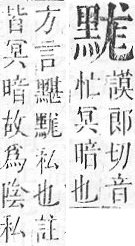 䵨
謨郎切音
忙冥暗也
方言黮䵨私也註
皆冥暗故為陰私